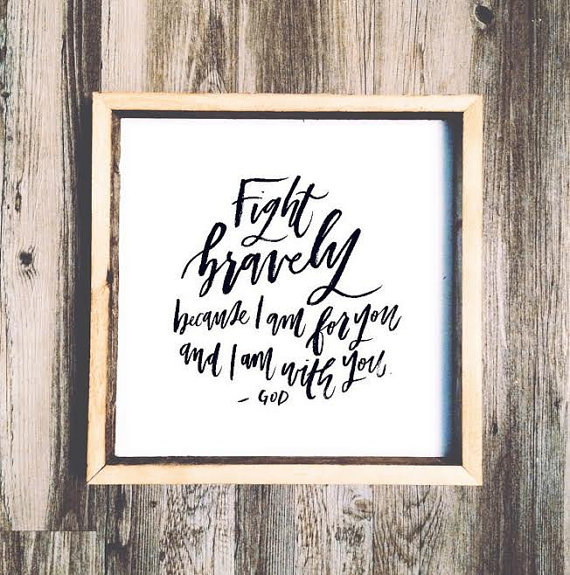 Fight
bravely
because I am for you
and I am with you.
- GOD